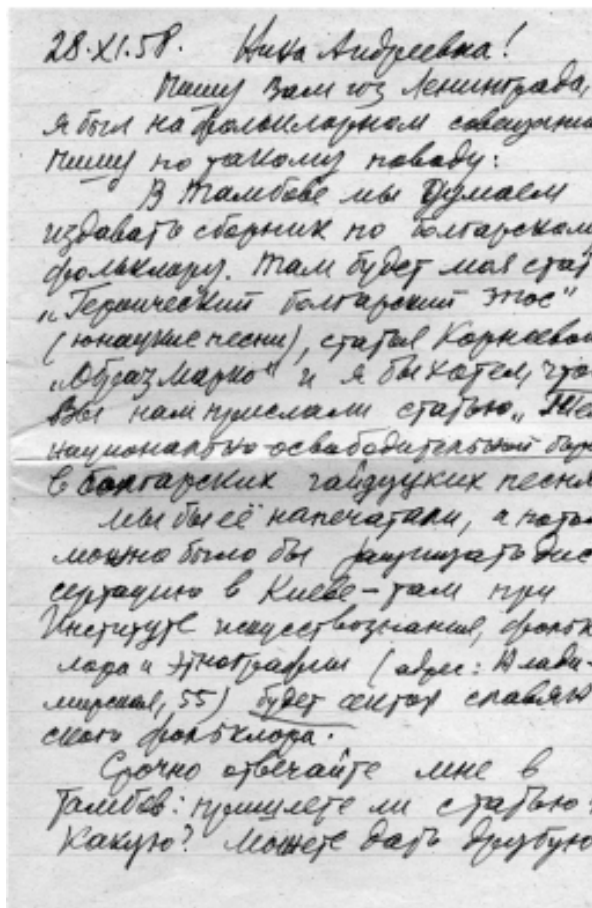 28.XI.58. Нина Андреевна!
Пишу Вам из Ленинграда,
я был на фольклорном совещании
пишу по такому поводу:
В Тамбове мы думаем
издавать сборник по болгарском
фольклору. Там будет моя стат
„Героический болгарский эпос"
(юнацкие песни), статья Корнеевой
„Образ Марко" и я бы хотел, что
Вы нам прислали статью „Тем
национально-освободительной борь
в болгарских гайдуцких песня
Мы бы её напечатали, а потом
можно было бы защищать дис
сертацию в Киеве – там при
Институте искусствознания, фольк
лора и этнографии (адрес: Влади-
мирская, 55) будет сектор славян
ского фольклора.
Срочно отвечайте мне в
Тамбов: пришлете ли статью?
Какую? Можете дать другую